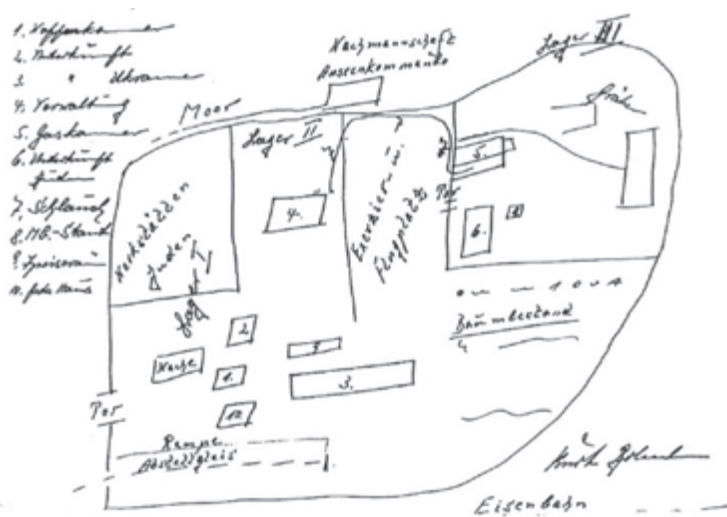 1. Waffenkammer
2. Unterkunft
3. " Ukrainer
4. Verwaltung
5. Gaskammer
6. Unterkunft
Juden
7. Schlauch
8. MG.-Stand
9.
10.
Wachmannschaft
Aussenkommando
Lager III
Moor
Lager II
7.
5.
Tor
4.
Exerzier- u.
Flugplatz
6.
8
Werkstätten
Juden
Lager I
Baumbestand
2.
9
Wache
1.
3.
10.
Tor
Rampe
Abstellgleis
Eisenbahn